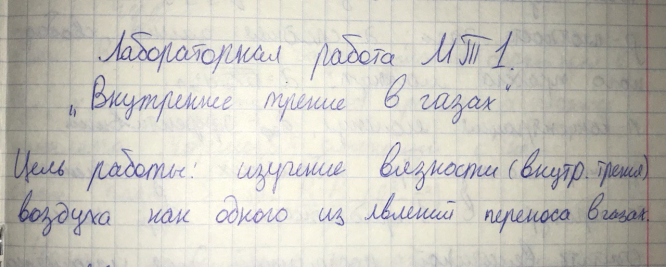 Лабораторная работа МТ1.
„Внутреннее трение в газах"
Цель работы: изучение вязности (внутр. трения)
воздуха как одного из явлений переноса в газах.